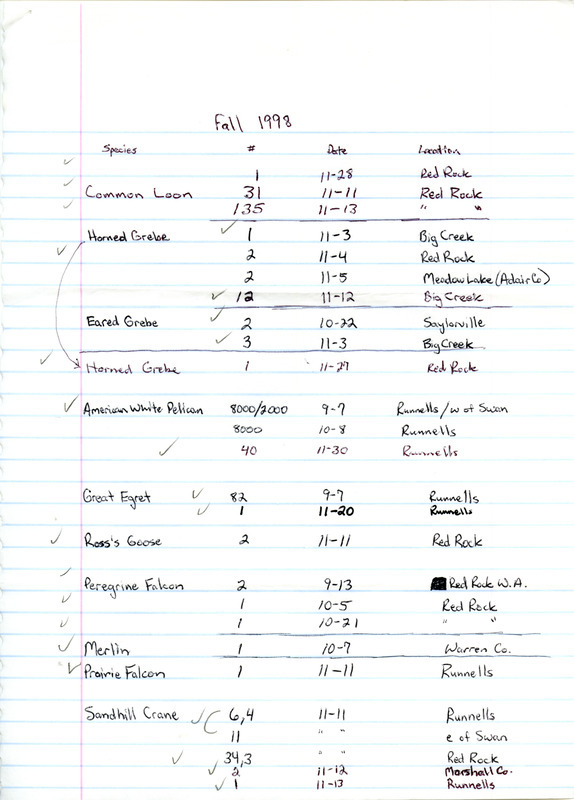 Fall 1998
Species # Date Location
1 11-28 Red Rock
Common Loon 31 11-11 Red Rock
135 11-13 " "
Horned Grebe 1 11-3 Big Creek
2 11-4 Red Rock
2 11-5 Meadow Lake (Adair Co)
12 11-12 Big Creek
Eared Grebe 2 10-22 Saylorville
3 11-3 Big Creek
Horned Grebe 1 11-29 Red Rock
American White Pelican 8000/2000 9-7 Runnells/w of Swan
8000 10-8 Runnells
40 11-30 Runnells
Great Egret 82 9-7 Runnells
1 11-20 Runnells
Ross's Goose 2 11-11 Red Rock
Peregrine Falcon 2 9-13 Red Rock W.A.
1 10-5 Red Rock
1 10-21 " "
Merlin 1 10-7 Warren Co.
Prairie Falcon 1 11-11 Runnells
Sandhill Crane 6,4 11-11 Runnells
11 " " e of Swan
34,3 " " Red Rock
2 11-12 Marshall Co.
1 11-13 Runnells